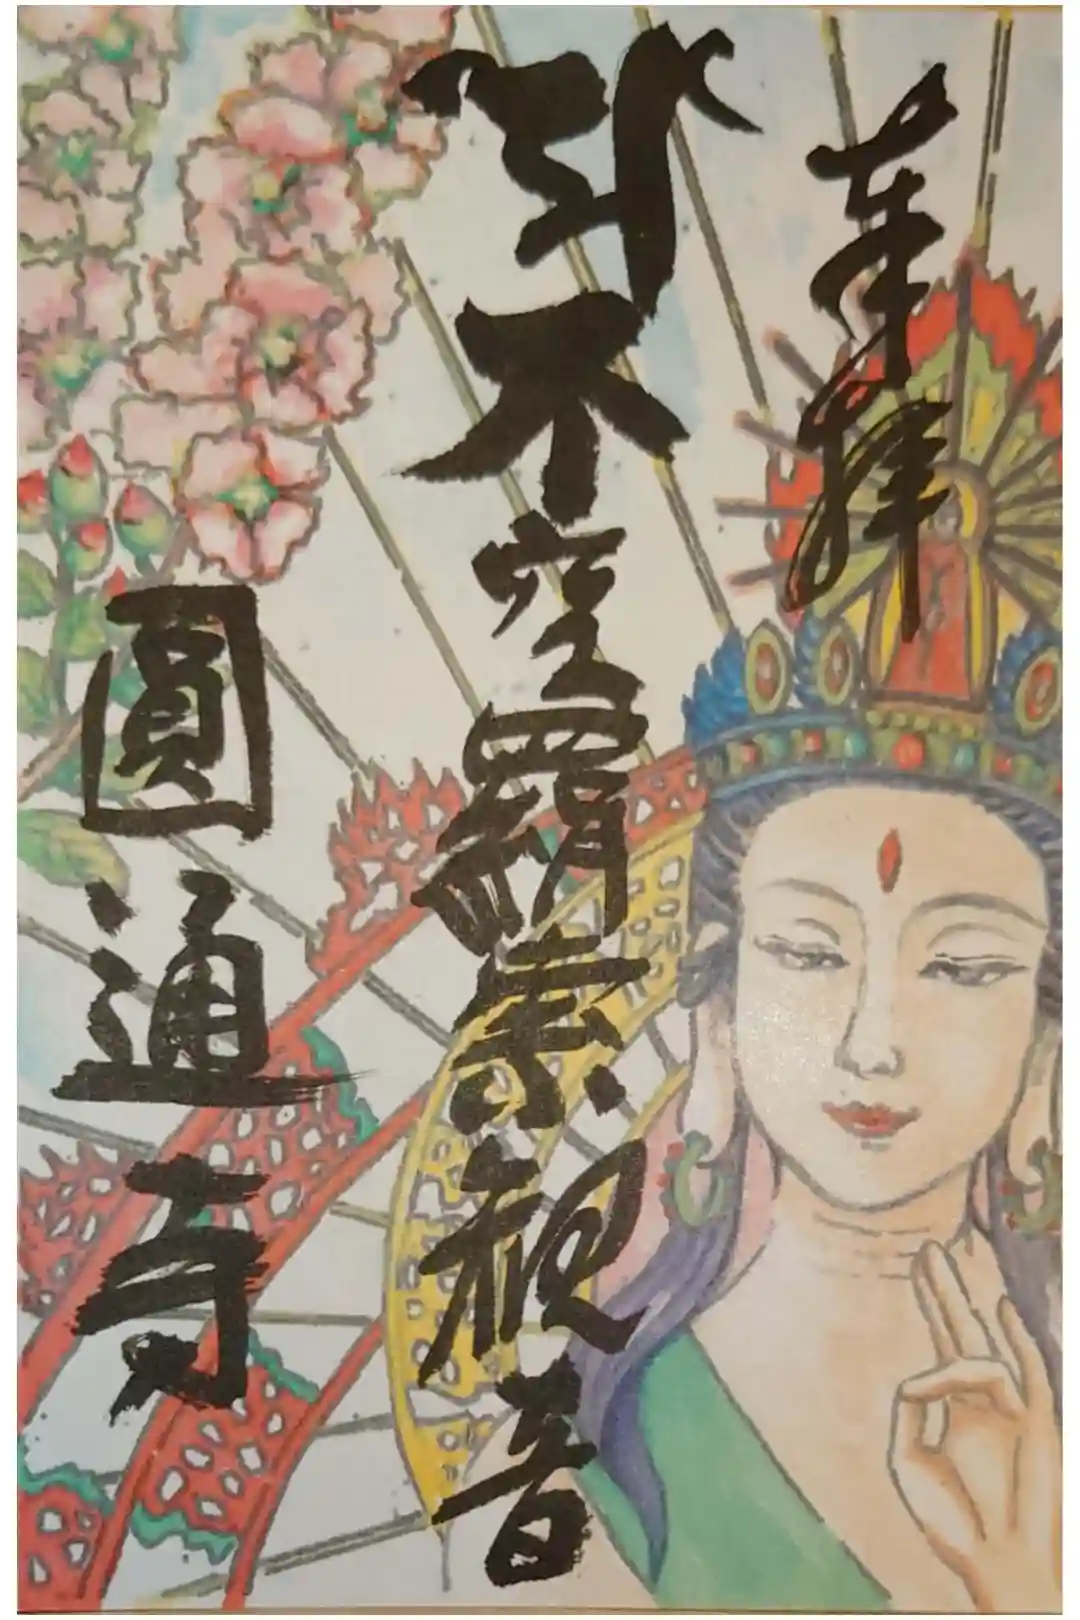 奉拜
不空羂索観音
圓通寺